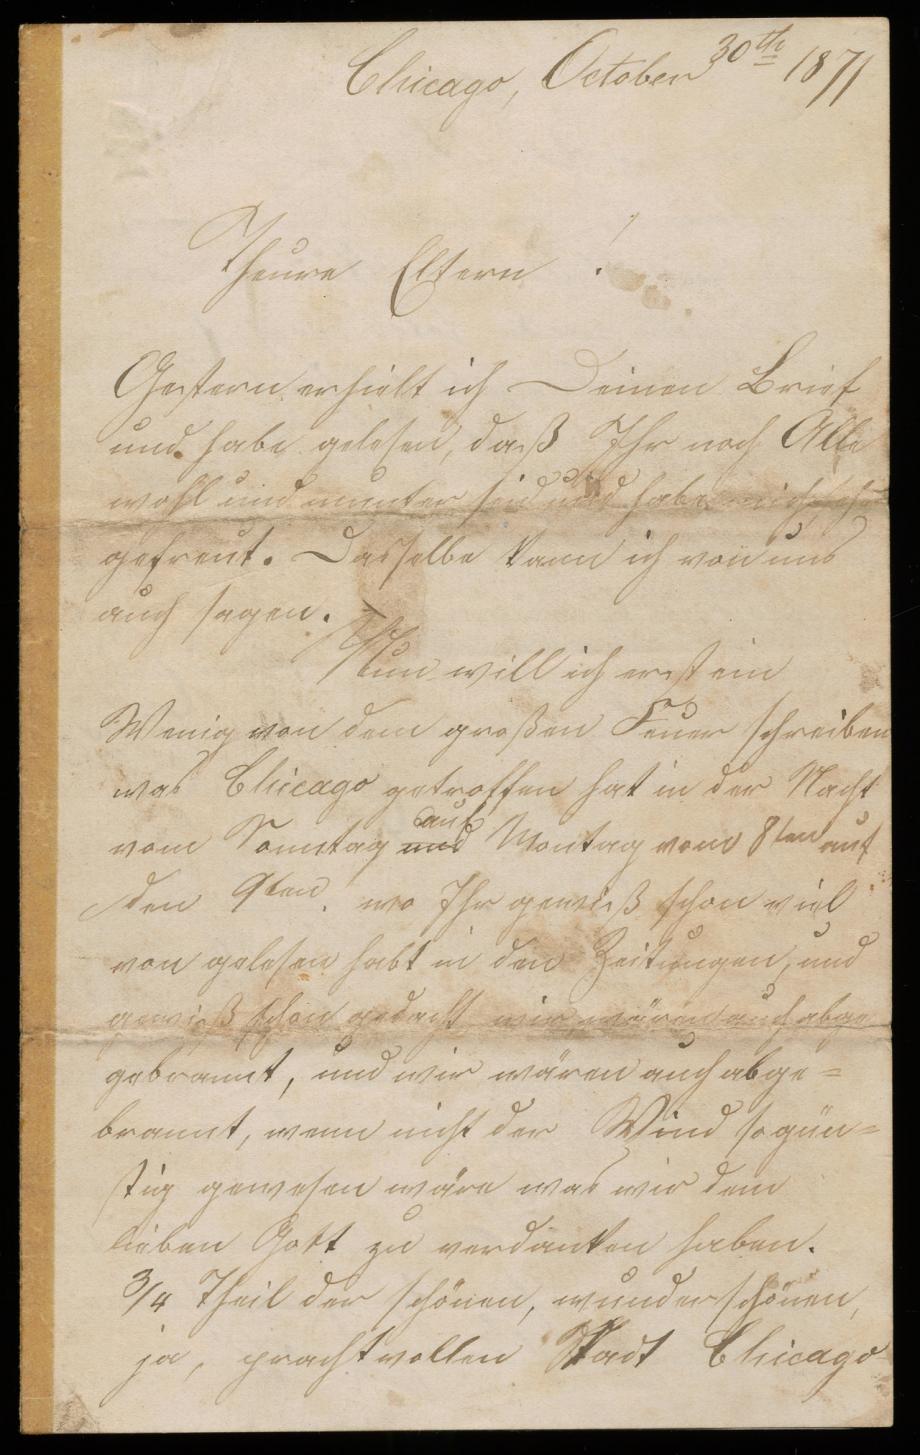 Chicago, October 30th 1871
Theure Eltern !
Gestern erhielt ich Deinen Brief
und habe gelesen, daß Ihr noch Alle
wohl und munter seid und habe mich sehr
gefreut. Dasselbe kann ich von uns
auch sagen.
Nun will ich erst ein
Wenig von dem großen Feuer schreiben
was Chicago getroffen hat in der Nacht
auf
vom Sonntag und Montag vom 8ten auf
den 9ten. wo Ihr gewiß schon viel
von gelesen habt in den Zeitungen, und
gewiß schon gedacht wir wären auch abge
gebrannt, und wir wären auch abge=
brannt, wenn nicht der Wind so gün=
stig gewesen wäre was wir dem
lieben Gott zu verdanken haben.
3/4 Theil der schönen, wunderschönen,
ja, prachtvollen Stadt Chicago